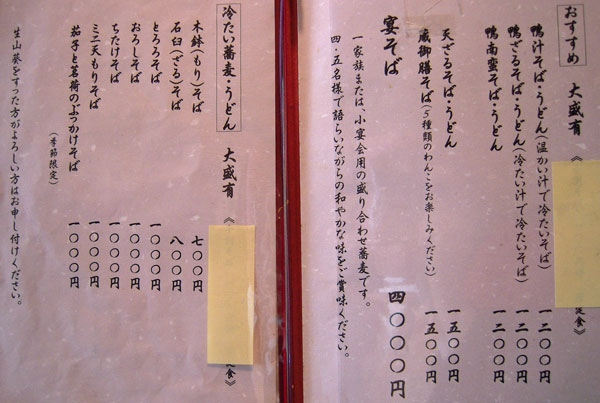 おすすめ 大盛有
鴨汁そば・うどん(温かい汁で冷たいそば) 一二〇〇円
鴨ざるそば・うどん(冷たい汁で冷たいそば) 一二〇〇円
鴨南蛮そば・うどん 一二〇〇円
天ざるそば・うどん 一五〇〇円
蔵御膳そば(5種類のわんこをお楽しみください) 一五〇〇円
宴そば 四〇〇〇円
一家族または、小宴会用の盛り合わせ蕎麦です。
四・五名様で語らいながらの和やかな味をご賞味ください。
冷たい蕎麦・うどん 大盛有
木鉢(もり)そば 七〇〇円
石臼(ざる)そば 八〇〇円
とろろそば 一〇〇〇円
おろしそば 一〇〇〇円
ちたけそば 一〇〇〇円
ミニ天もりそば 一〇〇〇円
茄子と茗荷のぶっかけそば 一〇〇〇円
(季節限定)
生山葵をすった方がよろしい方はお申し付けください。